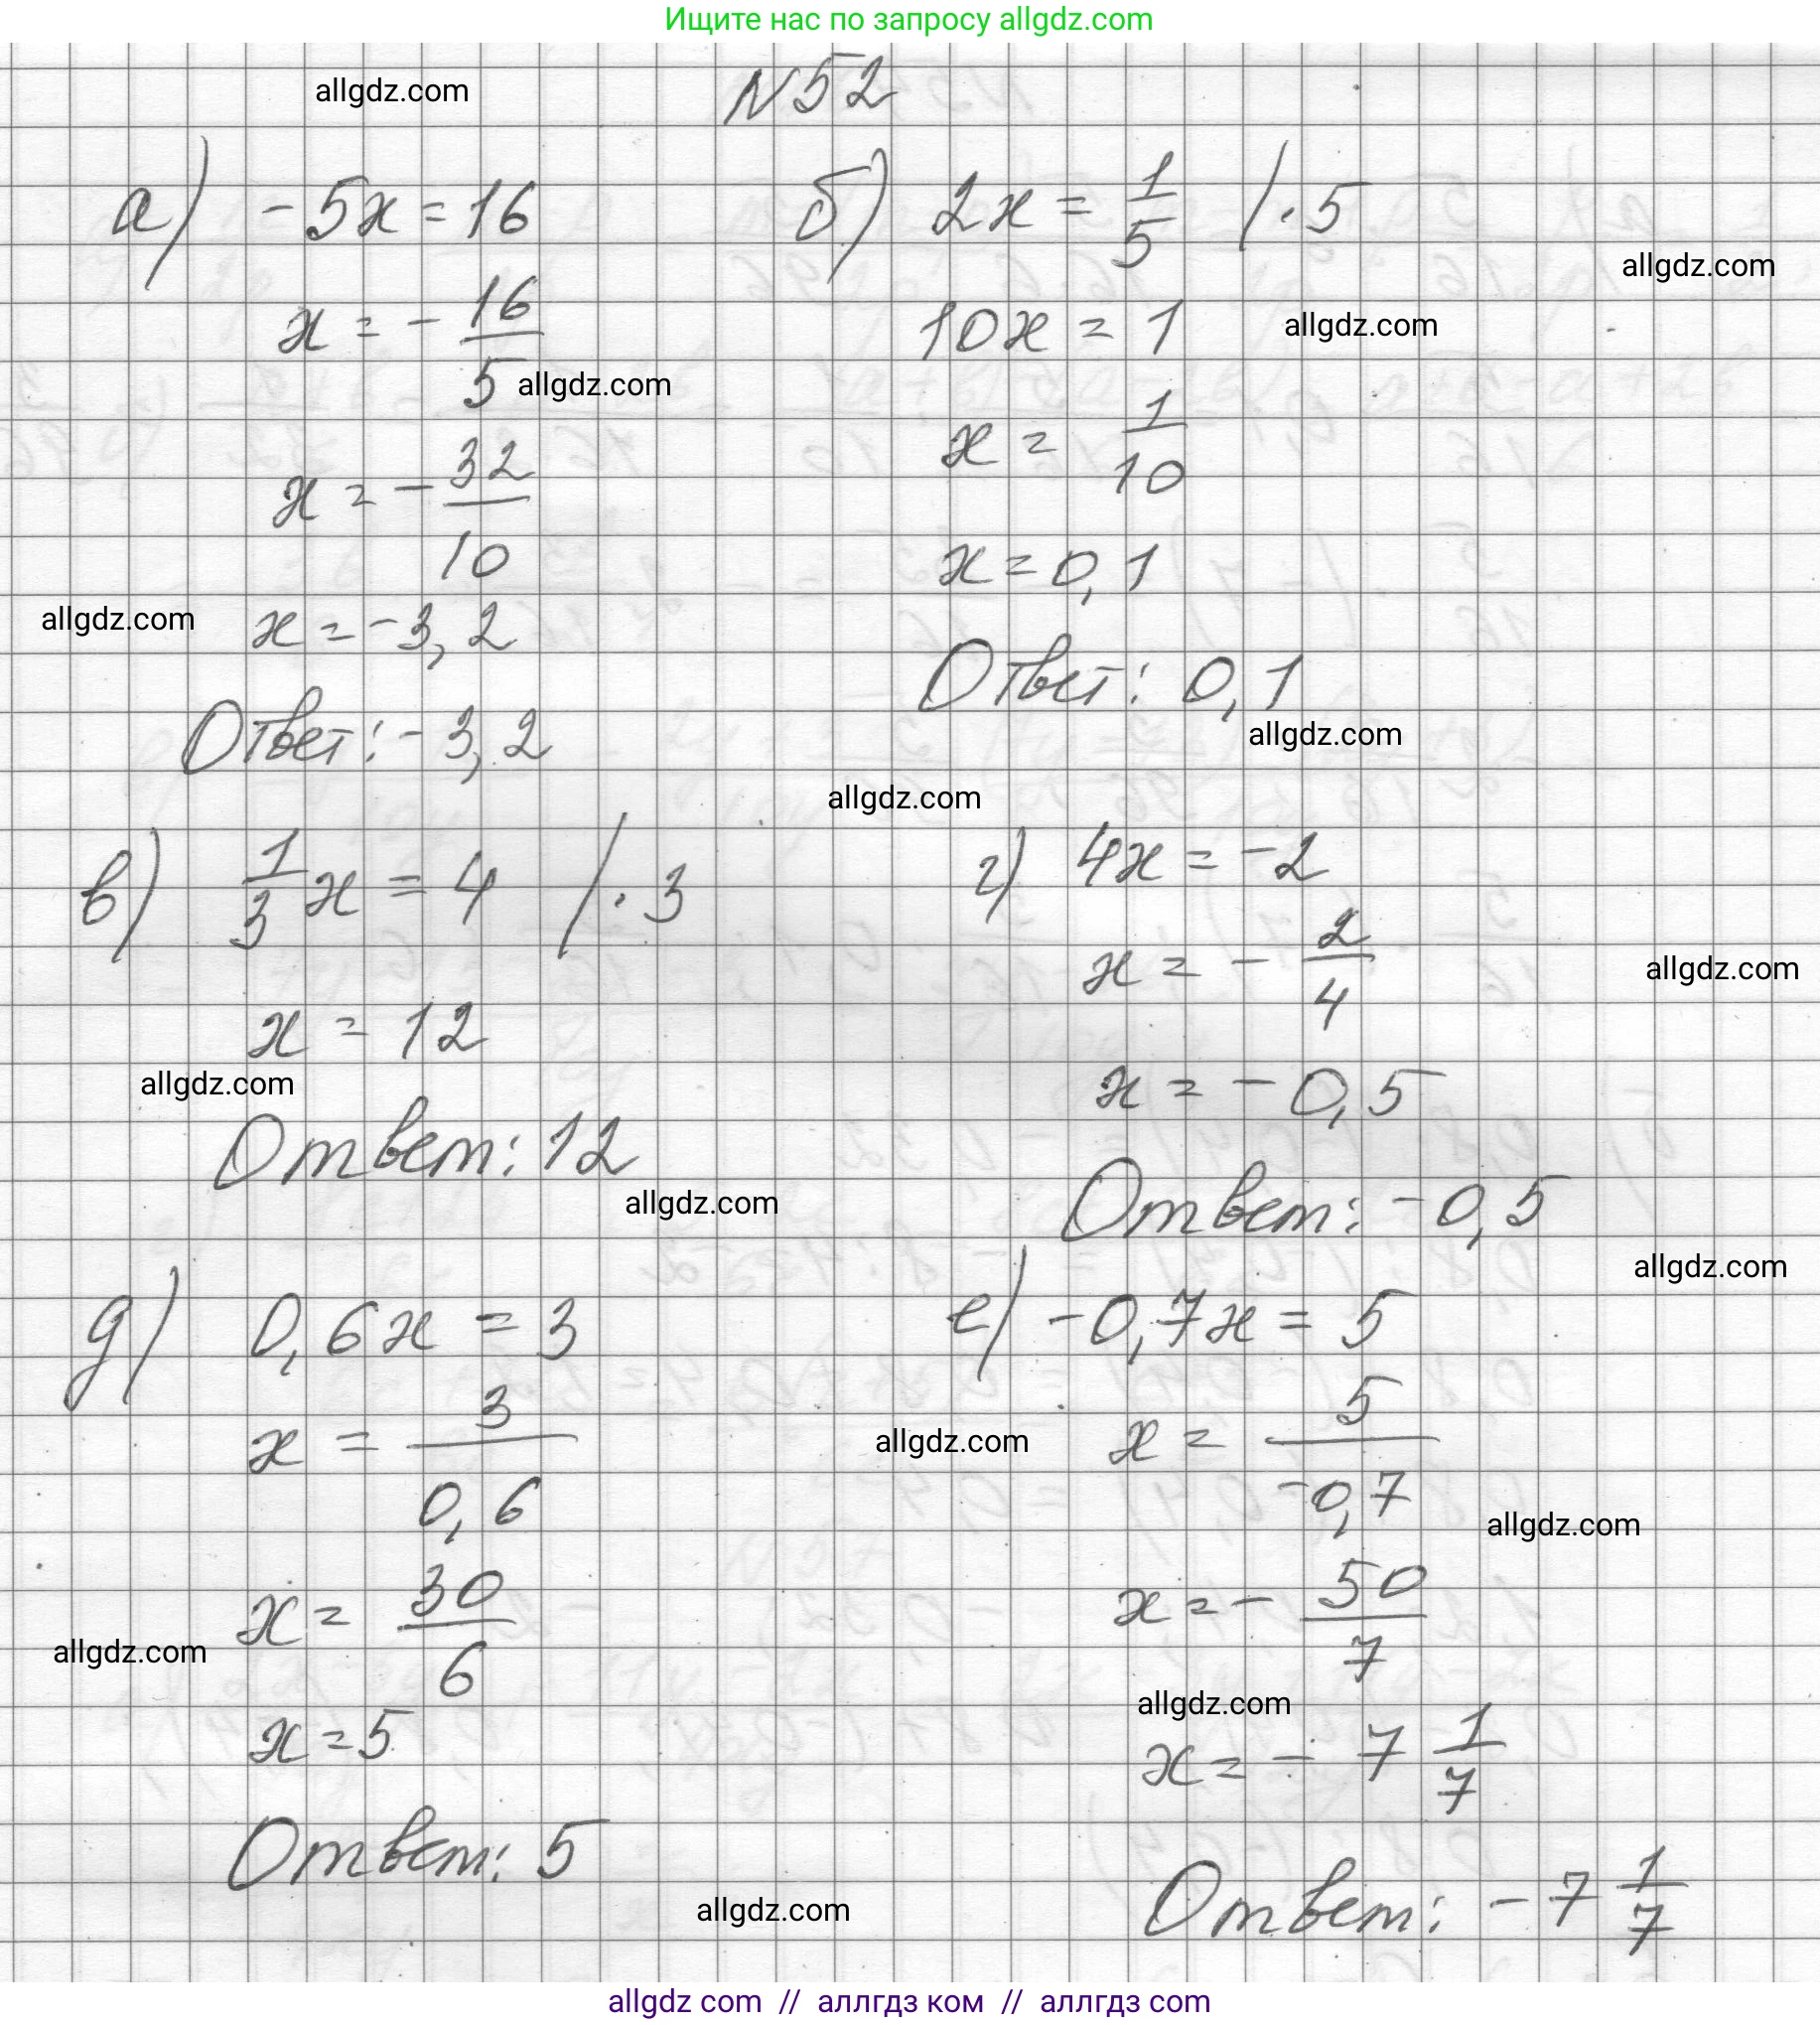 Ищите нас по запросу allgdz.com
allgdz.com
N52
а) -5x = 16
x = - 16/5
allgdz.com
x = - 32/10
allgdz.com
x = -3,2
Ответ: -3,2
б) 2x = 1/5 / · 5
allgdz.com
10x = 1
allgdz.com
x = 1/10
x = 0,1
Ответ: 0,1
allgdz.com
allgdz.com
в) 1/3 x = 4 / · 3
x = 12
allgdz.com
Ответ: 12
allgdz.com
г) 4x = -2
x = - 2/4
allgdz.com
x = -0,5
Ответ: -0,5
allgdz.com
д) 0,6x = 3
x = 3/0,6
x = 30/6
allgdz.com
x = 5
Ответ: 5
allgdz.com
е) -0,7x = 5
allgdz.com
x = 5/-0,7
allgdz.com
x = - 50/7
allgdz.com
x = - 7 1/7
Ответ: - 7 1/7
allgdz com // аллгдз ком // аллгдз com